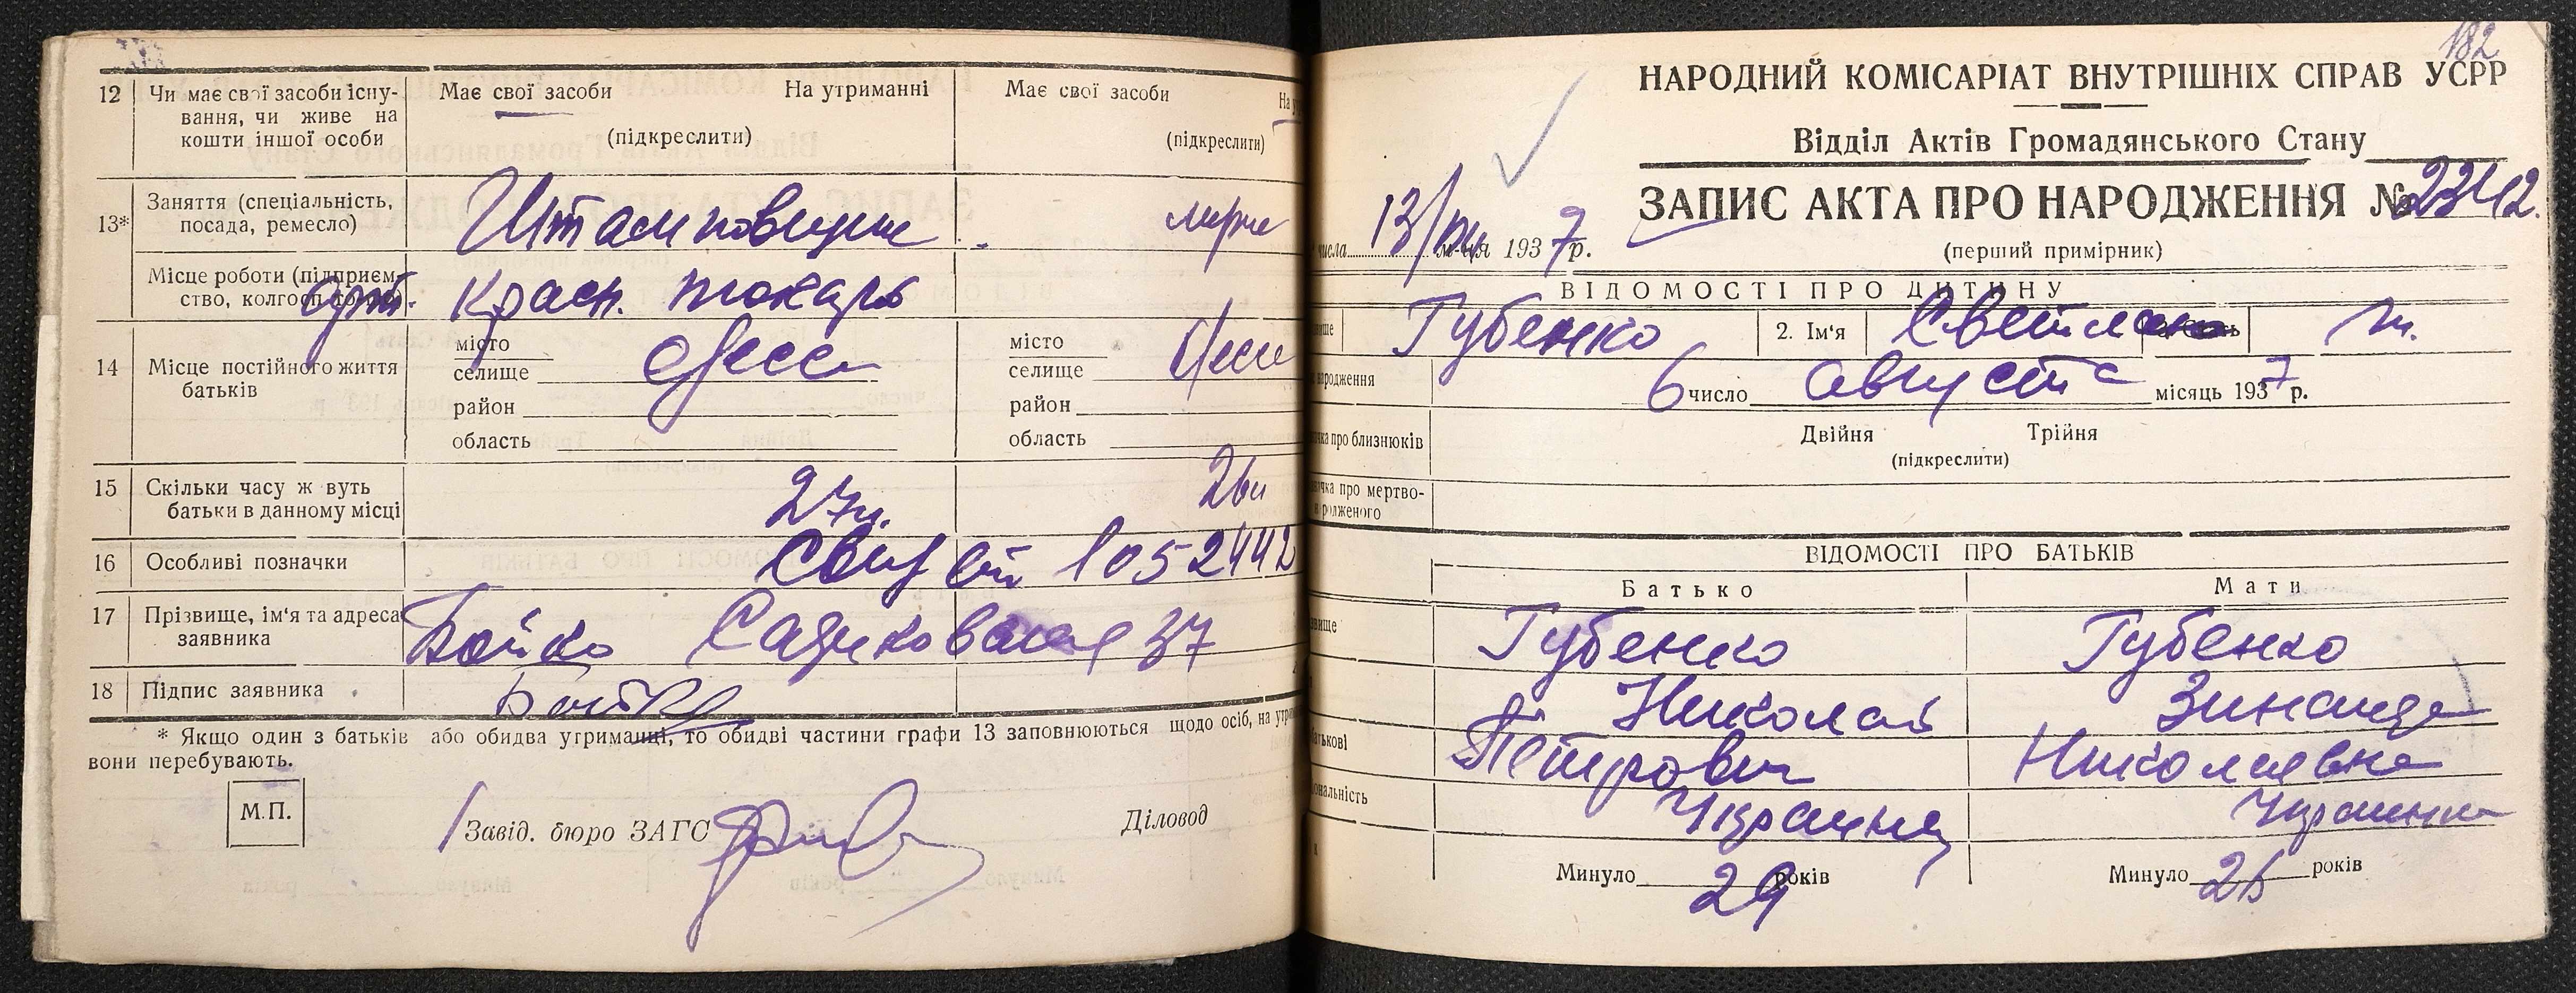 12 Чи має свої засоби існу-
вання, чи живе на
кошти іншої особи
Має свої засоби На утриманні
(підкреслити)
Має свої засоби
(підкреслити)
13* Заняття (спеціальність,
посада, ремесло)
Штамповщик
Місце роботи (підприєм-
ство, колгосп
арт. Красн. токарь
14 Місце постійного життя
батьків
місто
селище
район
область
Одесса
місто
селище
район
область
Одесса
15 Скільки часу ж вуть
батьки в данному місці
27 л.
26 л
16 Особливі позначки
1052442
17 Прізвище, ім'я та адреса
заявника
Бойко Садиковская 37
18 Підпис заявника
Бойко
* Якщо один з батьків або обидва утриманці, то обидві частини графи 13 заповнюються щодо осіб, на
вони перебувають.
М.П.
Завід. бюро ЗАГС
Діловод
182
НАРОДНИЙ КОМІСАРІАТ ВНУТРІШНІХ СПРАВ УСРР
Відділ Актів Громадянського Стану
ЗАПИС АКТА ПРО НАРОДЖЕННЯ № 2342.
(перший примірник)
числа 13/VIII м-ця 1937 р.
ВІДОМОСТІ ПРО ДИТИНУ
Губенко 2. Ім'я Светлана ж.
6 число августа місяць 1937 р.
про близнюків
Двійня Трійня
(підкреслити)
про мертво-
ВІДОМОСТІ ПРО БАТЬКІВ
Батько Мати
Губенко Губенко
Николай Зинаида
Петрович Николаевна
Украинец Украинка
Минуло 29 років
Минуло 26 років